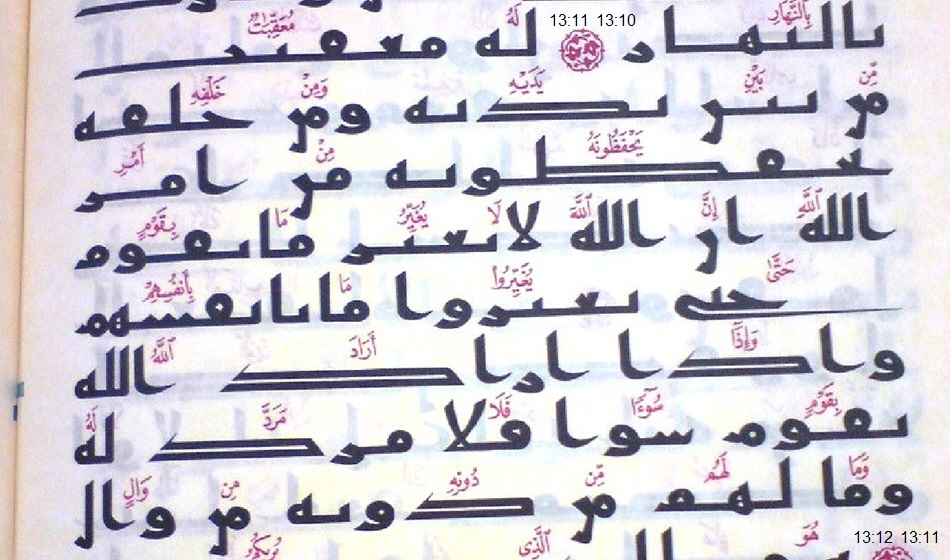 بِالنَّهَارِ 13:10 13:11 لَهُ مُعَقِّبَٰتٌ
بالنهار له معقبت
مِّنۢ بَيْنِ يَدَيْهِ وَمِنْ خَلْفِهِۦ
من بين يديه ومن خلفه
يَحْفَظُونَهُۥ مِنْ أَمْرِ
يحفظونه من امر
ٱللَّهِ إِنَّ ٱللَّهَ لَا يُغَيِّرُ مَا بِقَوْمٍ
الله ان الله لا يغير ما بقوم
حَتَّىٰ يُغَيِّرُوا۟ مَا بِأَنفُسِهِمْ
حتى يغيروا ما بانفسهم
وَإِذَآ أَرَادَ ٱللَّهُ
واذا اراد الله
بِقَوْمٍ سُوٓءًا فَلَا مَرَدَّ لَهُۥ
بقوم سوا فلا مرد له
وَمَا لَهُم مِّن دُونِهِۦ مِن وَالٍ
وما لهم من دونه من وال
13:11 13:12 هُوَ ٱلَّذِى يُرِيكُمُ